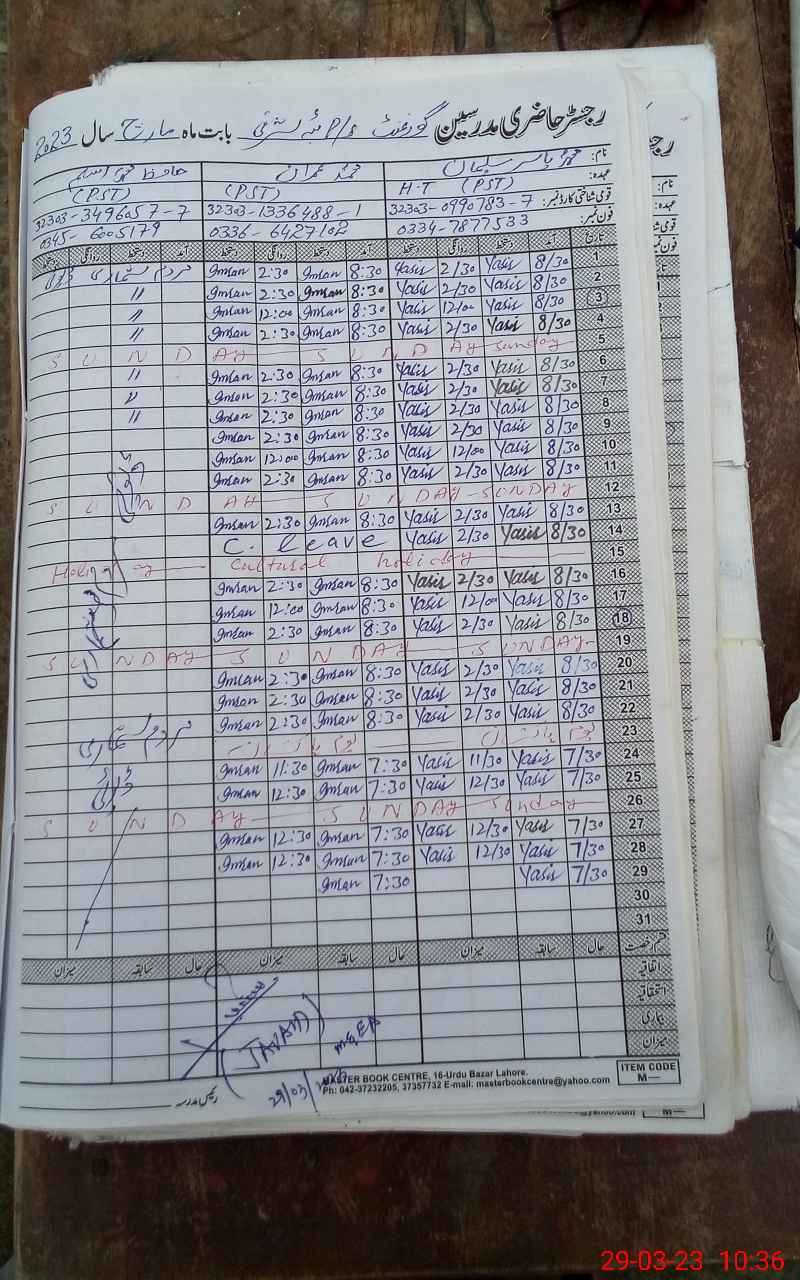 رجسٹر حاضری مدرسین گورنمنٹ P/S بابت ماہ مارچ سال 2023
نام: محمد یاسر سلیمان محمد عمران حافظ محمد اسلم
عہدہ: H.T (PST) (PST) (PST)
قومی شناختی کارڈ نمبر: 32303-0990783-7 32303-1336488-1 32303-3496057-7
فون نمبر: 0334-7877533 0336-6427102 0345-6005179
تاریخ آمد دستخط روانگی دستخط آمد دستخط روانگی دستخط آمد دستخط روانگی دستخط
1 8/30 Yasir 2/30 Yasir 8:30 Imran 2:30 Imran مردم شماری ڈیوٹی
2 8/30 Yasir 2/30 Yasir 8:30 Imran 2:30 Imran "
3 8/30 Yasir 12/00 Yasir 8:30 Imran 12:00 Imran "
4 8/30 Yasir 2/30 Yasir 8:30 Imran 2:30 Imran "
5 S U N D AY S U N D AY Sunday
6 8/30 Yasir 2/30 Yasir 8:30 Imran 2:30 Imran "
7 8/30 Yasir 2/30 Yasir 8:30 Imran 2:30 Imran "
8 8/30 Yasir 2/30 Yasir 8:30 Imran 2:30 Imran "
9 8/30 Yasir 2/30 Yasir 8:30 Imran 2:30 Imran
10 8/30 Yasir 12/00 Yasir 8:30 Imran 12:00 Imran
11 8/30 Yasir 2/30 Yasir 8:30 Imran 2:30 Imran
12 S U N D AY S U N DAY - SUNDAY
13 8/30 Yasir 2/30 Yasir 8:30 Imran 2:30 Imran
14 8/30 Yasir 2/30 Yasir C. leave
15 Holiday Cultural holiday
16 8/30 Yasir 2/30 Yasir 8:30 Imran 2:30 Imran
17 8/30 Yasir 12/00 Yasir 8:30 Imran 12:00 Imran
18 8/30 Yasir 2/30 Yasir 8:30 Imran 2:30 Imran
19 S U N D A Y S U N D A Y S U N D A Y
20 8/30 Yasir 2/30 Yasir 8:30 Imran 2:30 Imran
21 8/30 Yasir 2/30 Yasir 8:30 Imran 2:30 Imran
22 8/30 Yasir 2/30 Yasir 8:30 Imran 2:30 Imran
23 یوم پاکستان یوم پاکستان مردم شماری
24 7/30 Yasir 11/30 Yasir 7:30 Imran 11:30 Imran
25 7/30 Yasir 12/30 Yasir 7:30 Imran 12:30 Imran ڈیوٹی
26 S U N D AY S U N DAY Sunday
27 7/30 Yasir 12/30 Yasir 7:30 Imran 12:30 Imran
28 7/30 Yasir 12/30 Yasir 7:30 Imran 12:30 Imran
29 7/30 Yasir 7:30 Imran
30
31
قسم رخصت حال سابقہ میزان حال سابقہ میزان حال سابقہ میزان
اتفاقیہ
استحقاقیہ
بیماری
میزان
(JAVAID)
MEA
29/03/2023
رئیس مدرسہ
MASTER BOOK CENTRE, 16-Urdu Bazar Lahore.
Ph: 042-37232205, 37357732 E-mail: masterbookcentre@yahoo.com
ITEM CODE
M—
29-03-23 10:36